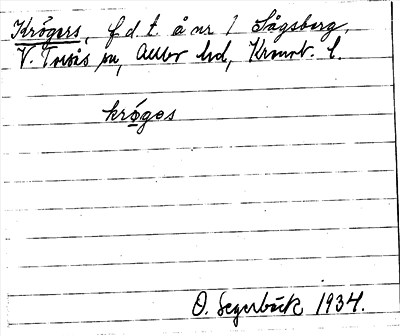 Krögers, f.d.t. å nr 1 Sågsberg,
V. Torsås sn, Allbo hd, Kronob. l.
krö̱gəs
O. Segerbäck 1934.